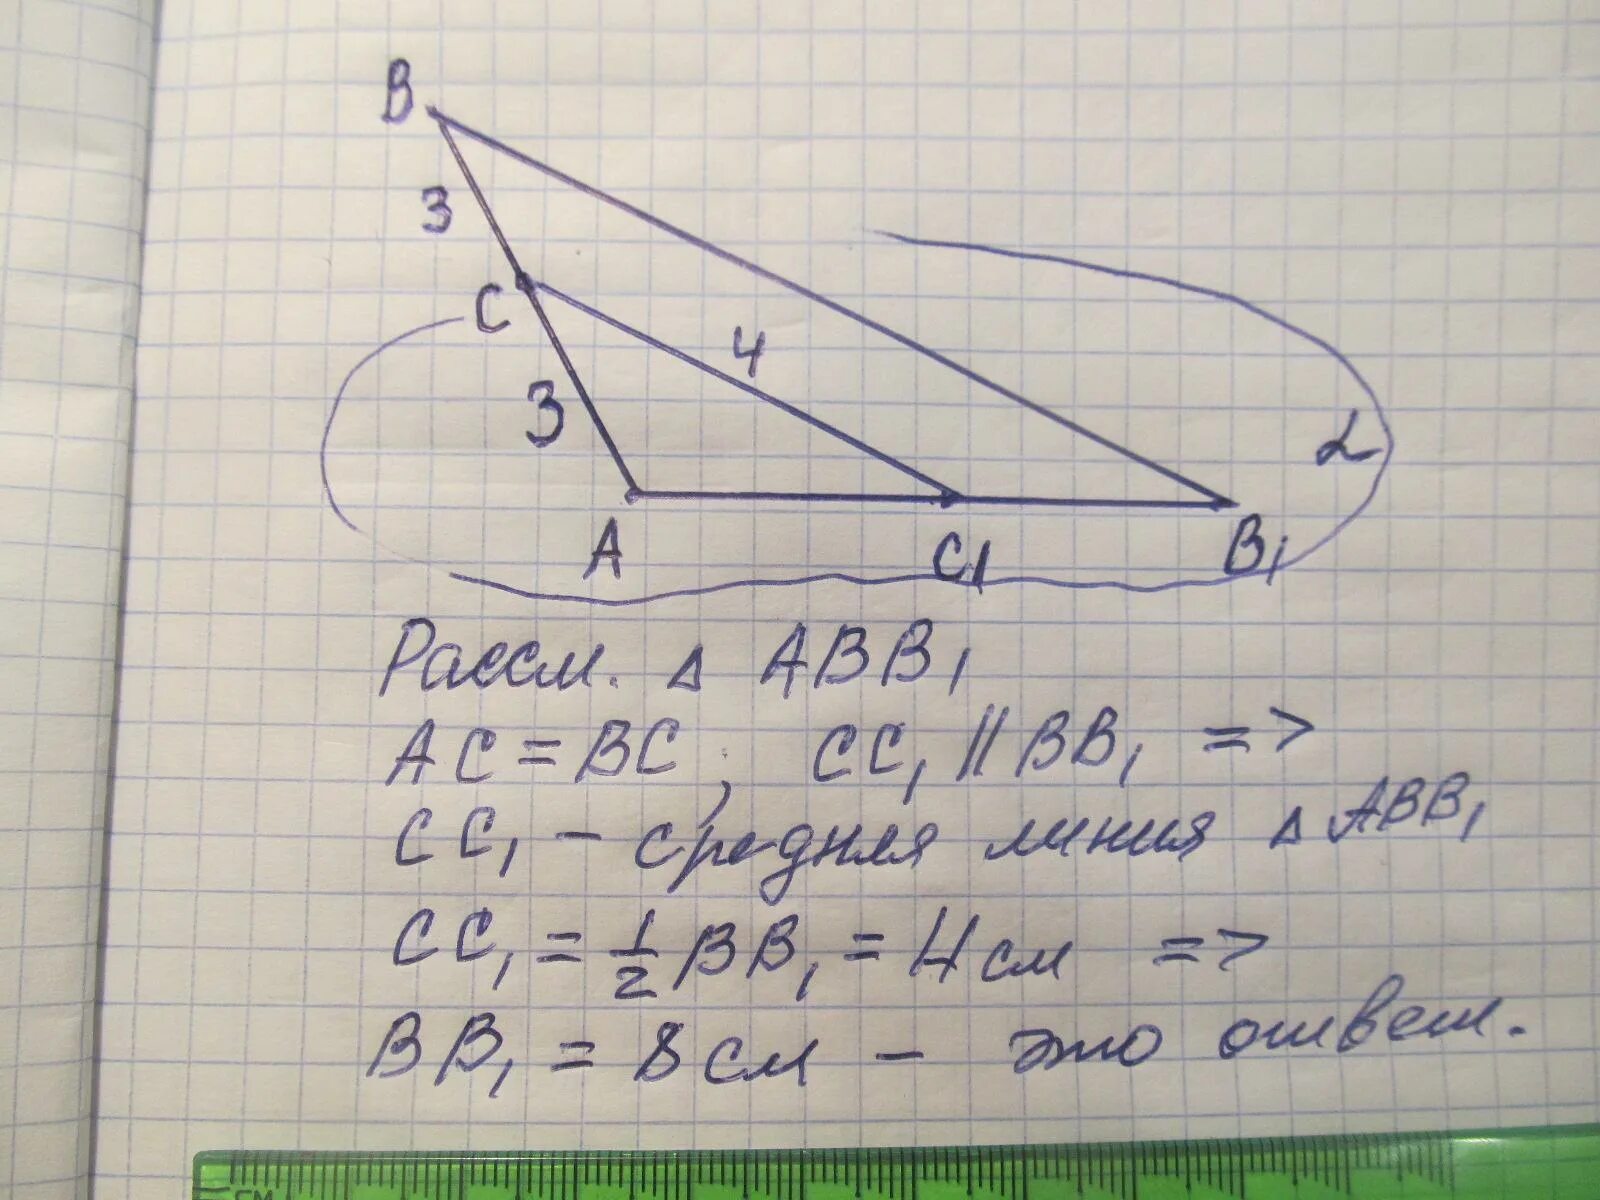 B
3
C
4
3
α
A
C1
B1
Рассм. △ ABB1
AC = BC ; CC1 || BB1 =>
CC1 – средняя линия △ ABB1
CC1 = 1/2 BB1 = 4 см =>
BB1 = 8 см – это ответ.
СМ